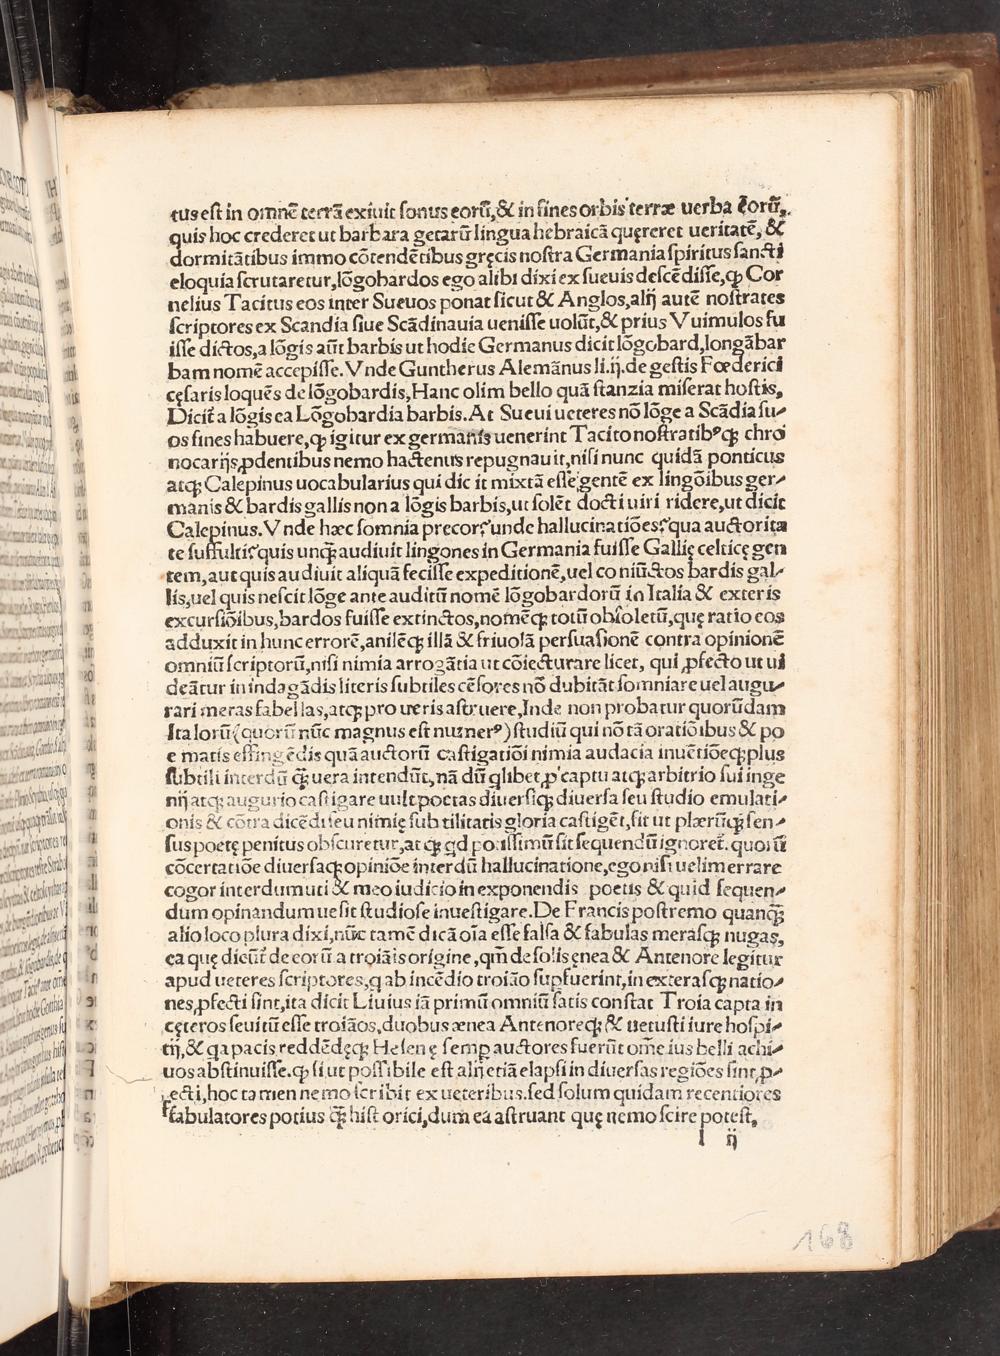 tus est in omnē terrā exiuit sonus eorū, & in fines orbis terræ uerba eorū,
quis hoc crederet ut barbara getarū lingua hebraicā quęreret ueritatē, &
dormitātibus immo cōtendētibus gręcis nostra Germania spiritus sancti
eloquia scrutaretur, lōgobardos ego alibi dixi ex sueuis descēdisse, ꝙ Cor
nelius Tacitus eos inter Sueuos ponat sicut & Anglos, alij autē nostrates
scriptores ex Scandia siue Scādinauia uenisse uolūt, & prius Vuimulos fu
isse dictos, a lōgis aūt barbis ut hodie Germanus dicit lōgobard, longābar
bam nomē accepisse. Vnde Guntherus Alemānus li. ij. de gestis Fœderici
cęsaris loquēs de lōgobardis, Hanc olim bello quā stanzia miserat hostis,
Dicit̄ a lōgis ea Lōgobardia barbis. At Sueui ueteres nō lōge a Scādia su⸗
os fines habuere, ꝙ igitur ex germanis uenerint Tacito nostratibꝰqꝫ chro
nocarijs, ꝓdentibus nemo hactenus repugnauit, nisi nunc quidā ponticus
atqꝫ Calepinus uocabularius qui dic it mixtā esse gentē ex lingōibus ger⸗
manis & bardis gallis non a lōgis barbis, ut solēt docti uiri ridere, ut dicit
Calepinus. Vnde hæc somnia precor? unde hallucinatiōes? qua auctorita
te suffultis? quis unqꝫ audiuit lingones in Germania fuisse Gallię celticę gen
tem, aut quis audiuit aliquā fecisse expeditionē, uel co niūctos bardis gal⸗
lis, uel quis nescit lōge ante auditū nomē lōgobardorū in Italia & exteris
excursiōibus, bardos fuisse extinctos, nomēqꝫ totū obsoletū, quę ratio eos
adduxit in hunc errorē, anilēqꝫ illā & friuolā persuasionē contra opinionē
omniū scriptorū, nisi nimia arrogātia ut cōiecturare licet, qui ꝓfecto ut ui
deātur in indagādis literis subtiles cēsores nō dubitāt somniare uel augu⸗
rari meras fabellas, atqꝫ pro ueris astruere, Inde non probatur quorūdam
Italorū (quorū nūc magnus est numerꝰ) studiū qui nō tā oratiōibus & po
e matis effingēdis quā auctorū castigatiōi nimia audacia inuētiōeqꝫ plus
subtili interdū q̄ꝫ uera intendūt, nā dū qlibet ꝓ captu atqꝫ arbitrio sui inge
nij atqꝫ augurio castigare uult poetas diuersiqꝫ diuersa seu studio emulati⸗
onis & cōtra dicēdi seu nimię subtilitatis gloria castigēt, sit ut plærūqꝫ sen⸗
sus poetę penitus obscuretur, at qꝫ qd potissimū sit sequendū ignoret̄. quorū
cōcertatiōe diuersaqꝫ opiniōe interdū hallucinatione, ego nisi uelim errare
cogor interdum uti & meo iudicio in exponendis poetis & quid sequen⸗
dum opinandumue sit studiose inuestigare. De Francis postremo quanq̄ꝫ
alio loco plura dixi, nūc tamē dicā oīa esse falsa & fabulas merasqꝫ nugas,
ea quę dicūt̄ de eorū a troiāis origine, qm̄ de solis ęnea & Antenore legitur
apud ueteres scriptores, q ab incēdio troiāo supfuerint, in exterasqꝫ natio⸗
nes, ꝓfecti sint, ita dicit Liuius iā primū omniū satis constat Troia capta in
cęteros seuitū esse troiāos, duobus ænea Antenoreqꝫ & uetusti iure hospi⸗
tij, & qa pacis reddēdęqꝫ Helenę semꝑ auctores fuerūt om̄e ius belli achi⸗
uos abstinuisse. ꝙ si ut possibile est alij etiā elapsi in diuersas regiōes sint ꝓ⸗
fecti, hoc tamen nemo scribit ex ueteribus. sed solum quidam recentiores
fabulatores potius q̄ꝫ historici, dum ea astruant quę nemo scire potest,
l ij
168